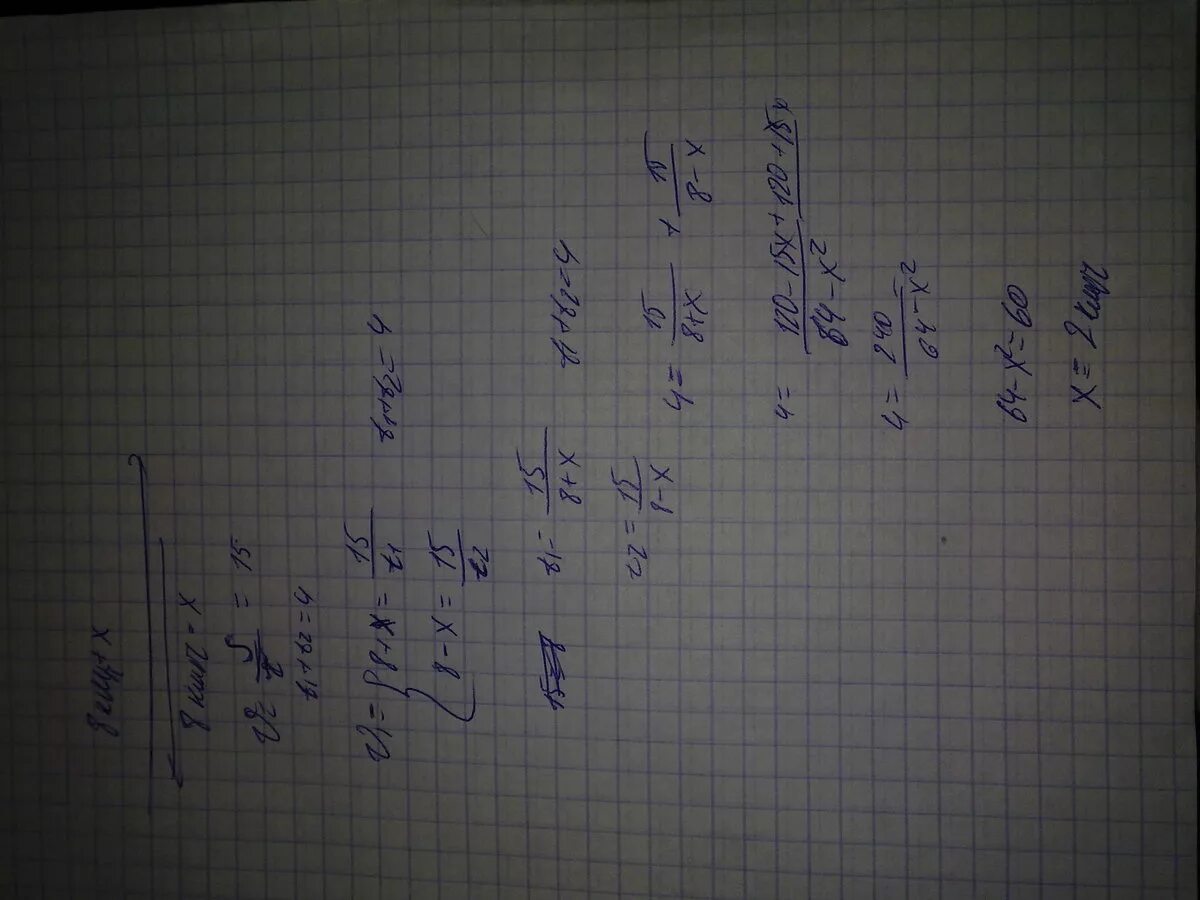 8 км/ч + x
8 км/ч - x
V = S/t = 15
t1 + t2 = 4
V1 = { 8 + x = 15/t1
8 - x = 15/t2
t1 + t2 = 4
t1 = 15/(8+x)
t1 + t2 = 4
t2 = 15/(8-x)
4 = 15/(8+x) + 15/(8-x)
4 = (120 - 15x + 120 + 15x)/(64 - x²)
4 = 240/(64 - x²) =
64 - x² = 60
x = 2 км/ч